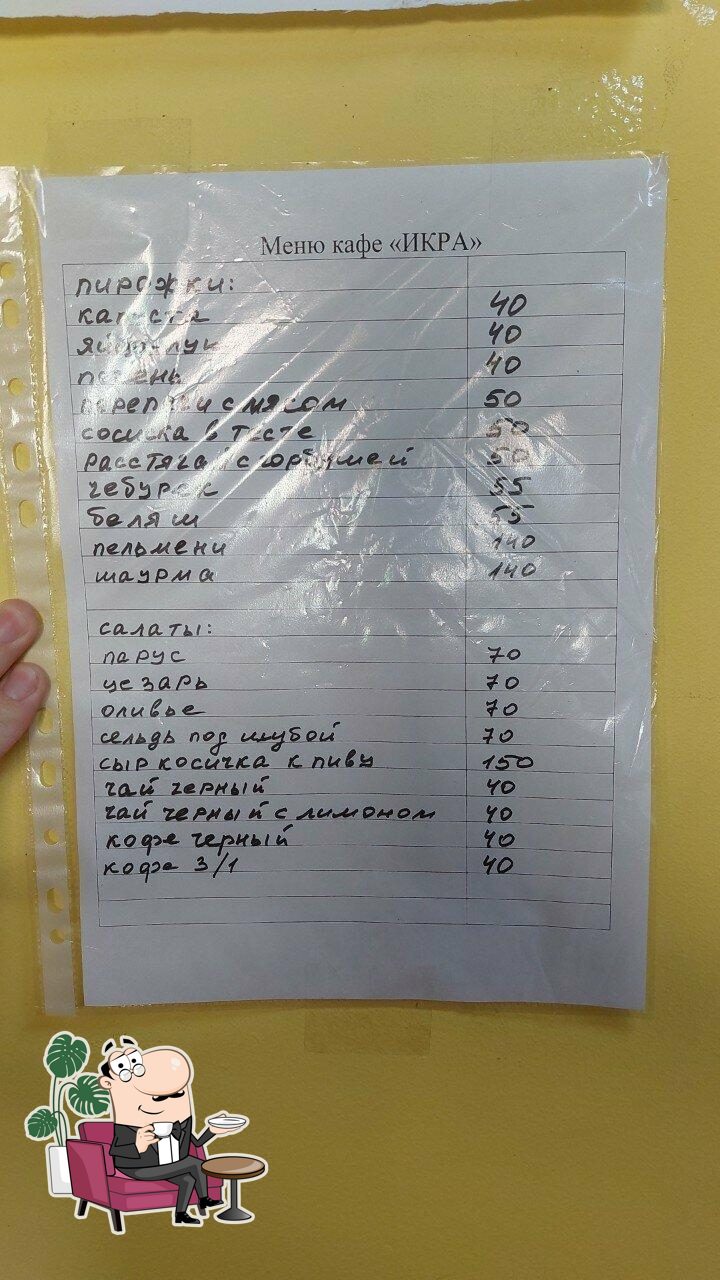 Меню кафе «ИКРА»
пирожки:
капуста 40
яйцо лук 40
печень 40
перепечи с мясом 50
сосиска в тесте 50
расстягай с горбушей 50
чебурек 55
беляш 55
пельмени 140
шаурма 140
салаты:
парус 70
цезарь 70
оливье 70
сельдь под шубой 70
сыр косичка к пиву 150
чай черный 40
чай черный с лимоном 40
кофе черный 40
кофе 3/1 40